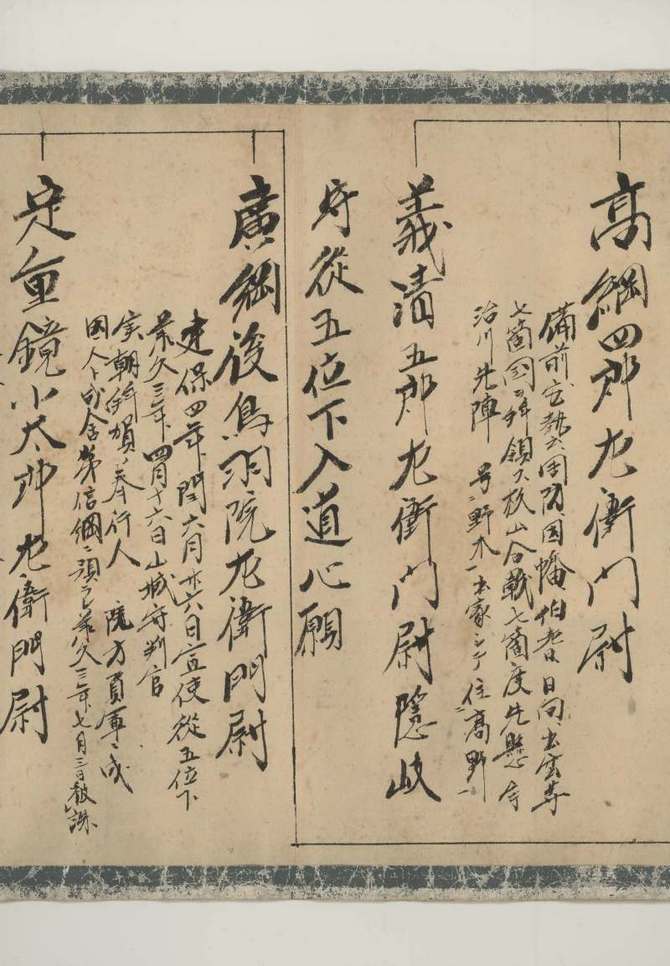 高綱四郎左衛門尉
備前安藝周防因幡伯耆日向出雲等
七箇国ヲ拝領ス杦山合戦七箇度先懸
治川先陣 号野木 出家シテ住高野
義清五郎左衛門尉隠岐
守従五位下入道心願
廣綱後鳥羽院左衛門尉
建保四年閏六月廿六日宣使従五位下
承久三年四月十六日山城守判官
実朝拝賀ノ奉行人 院方負軍ニ成
因人ト成舎弟信綱ニ預ラル承久三年七月三日被誅
定重鏡小太郎左衛門尉